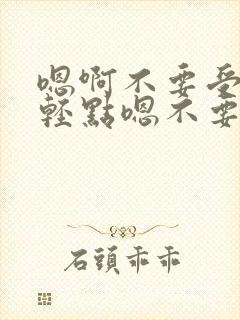 嗯啊不要受
輕點嗯不要
石頭乖乖